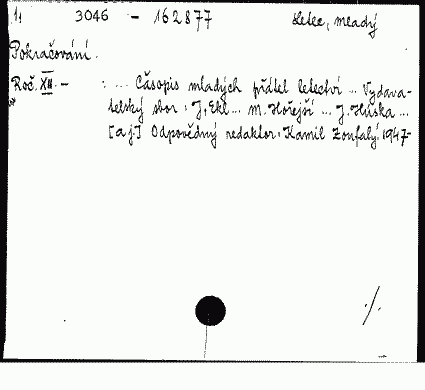 1, 3046 - 162877 Letec, mladý
Pokračování.
Roč. XII. - : ... Časopis mladých přátel letectví ... Vydava-
telský sbor: J. Ekl ... M. Hořejší ... J. Huska ...
[a j.] Odpovědný redaktor: Kamil Zoufalý. 1947-
./.